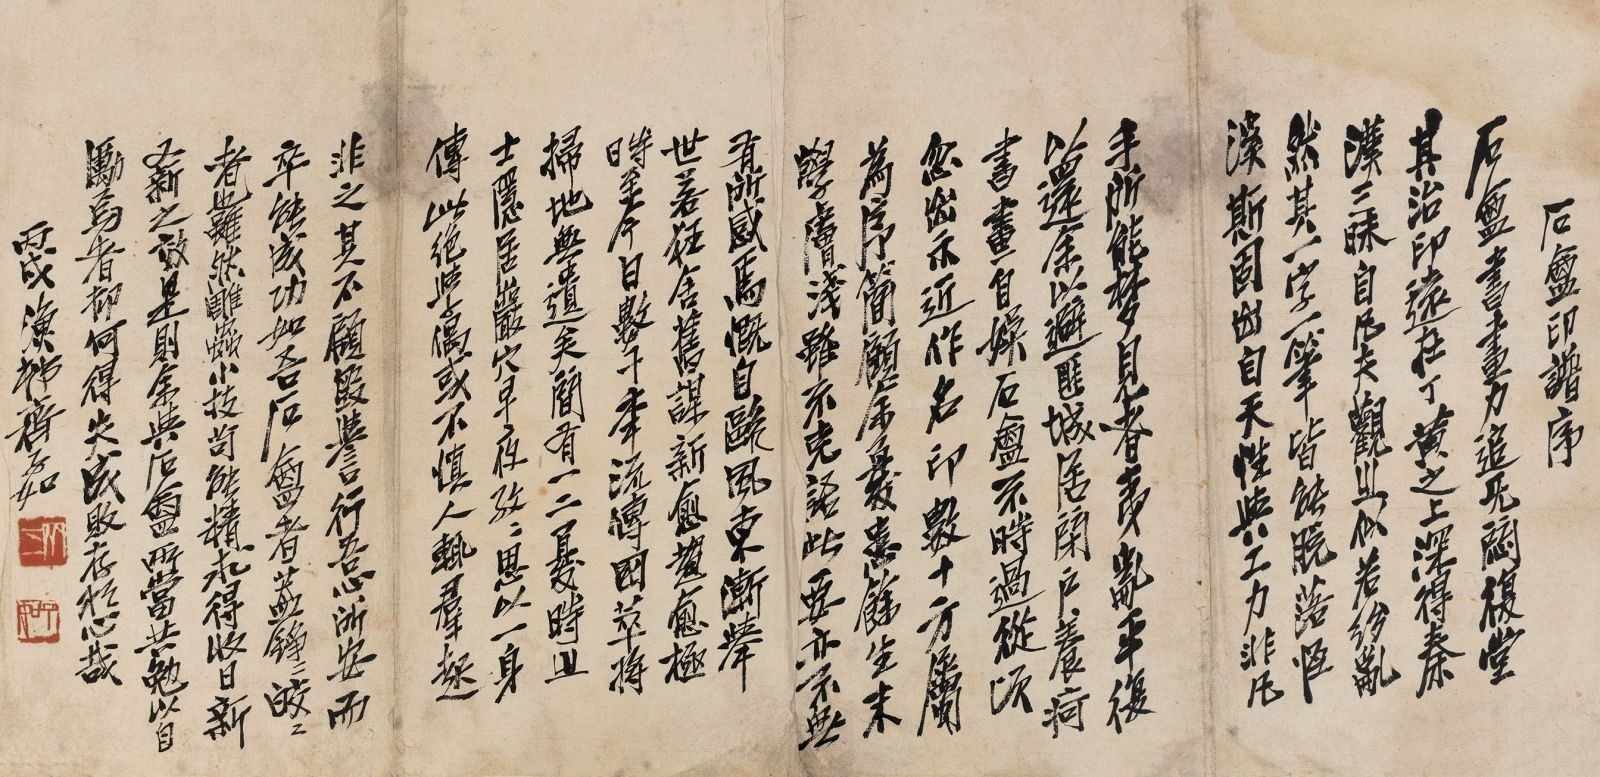 石盦印譜序
石盦書畫力追无悶復堂
其治印遠在丁黃之上深得秦
漢三昧自凡夫觀之似若紛亂
然其一字一筆皆能脫落恆
溪斯固出自天性與工力非凡
手所能夢見者戔亂平復
以還余以避匪城居閉戶養疴
書畫自娛石盦不時過從頃
忽出示近作名印數十方屬
為序簡顧余憂患餘生末
學膚淺雖不克語此要亦不無
有所感焉慨自歐風東漸舉
世若狂舍舊謀新愈趨愈極
時至今日數千年流傳國萃將
掃地無遺矣間有一二憂時之
士隱居巖穴早夜孜孜思以一身
傳此絕學偶或不慎人輒羣起
非之其不顧毀譽言行吾心所安而
卒能成功如吾石盦者蓋錚錚皎皎
者也雖然雕蟲小技苟能精求得收日新
又新之效是則余與石盦所當共勉以自
勵焉者抑何得失成敗存於心哉
丙戌漁邨齊如